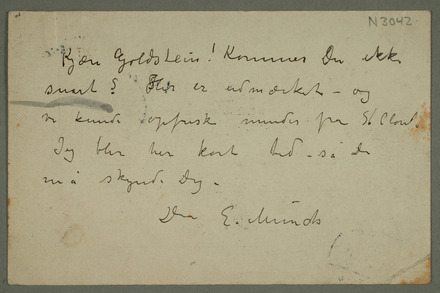 N3042.
Kjære Goldstein! Kommer Du ikke
snart? Her er udmærket – og
vi kunde opfriske minder fra St Cloud
Jeg blir her kort tid – så Du
må skynde Dig –
Din E. Munch